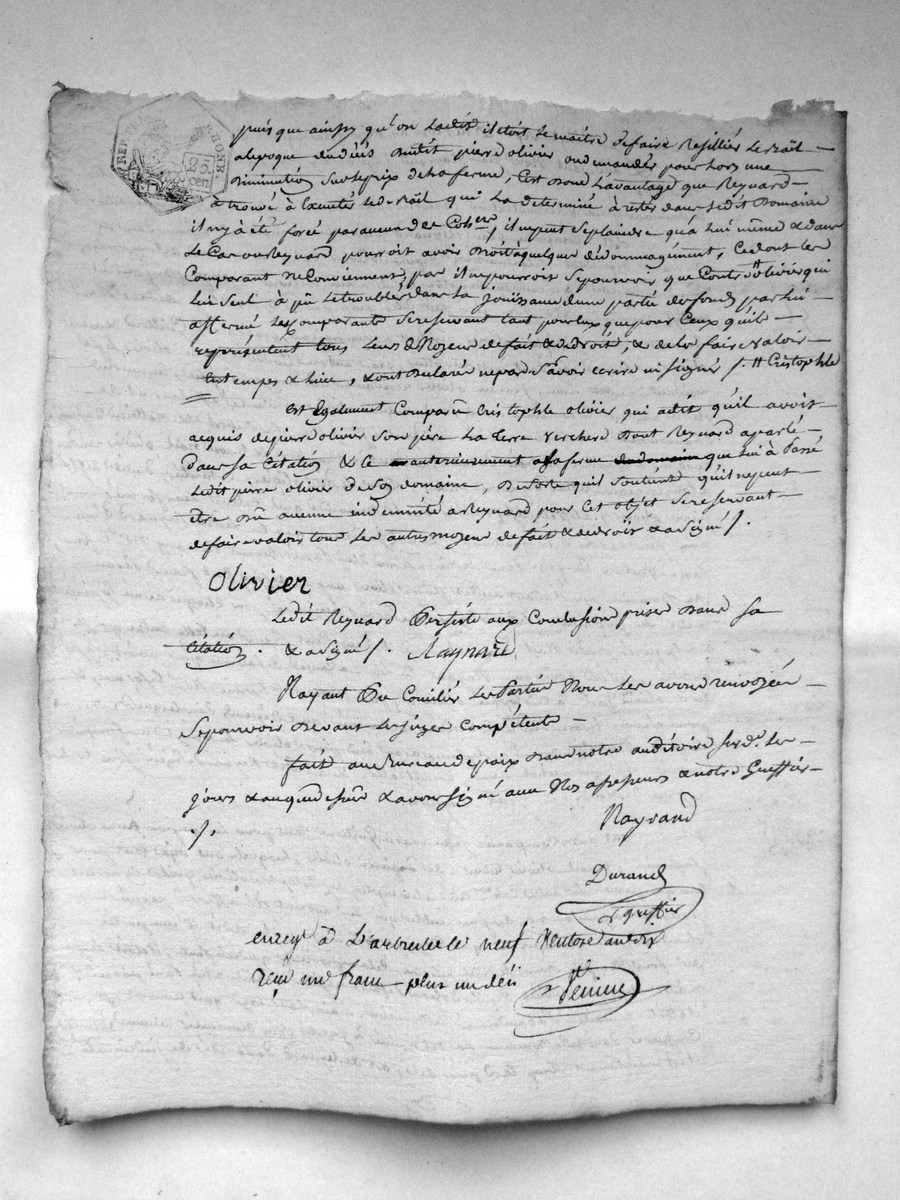 REP
25
cen
puis que ainsy qu'on la dit il étoit le maitre de faire Resilier le Bail
a lepoque du déués dudit pierre olivier ou demander pour lors une
diminution sur le prix de la ferme, C'est donc L'avantage que Reynard
a trouvé à Exécuter le Bail qui la determiné à rester dans ledit Domaine
il n'y a été forcé par aucun des Coh.ers, il ne peut se plaindre qu'a lui même & dans
Le Cas ou Reynard pourroit avoir Droit à quelque dédommagement, Ce dont les
Comparant ne Conviennent pas il ne pourroit se pourvoir que Contre olivier qui
lui Seul à pû le troubler dans La jouissance d'une partie des fonds par lui
affermé les Comparants se reservant tant pour eux que pour Ceux quils
représentent tous Leurs Moyens de fait & de droit, & de les faire valoir
En temps & Lieu, & ont Déclaré ne pas Savoir écrire ni signer /. Cristophle
Est Egalement Comparu Cristophle olivier qui a dit qu'il avoit
acquis de pierre olivier son père La terre verchere dont Reynard a parlé
dans sa Citation & Ce anterieurement a la ferme du domaine que lui à Passé
ledit pierre olivier de Son domaine, De sorte qu'il soutient qu'il ne peut
être dû aucune indemnité a Reynard pour Cet objet se reservant
de faire valoir tous les autres moyens de fait & de droit & a Signé /.
Olivier
Ledit Reynard Persiste aux Conclusions prises dans sa
Citation. & a Signé /. Raynard
N'ayant Pu Concilier les Parties Nous les avons renvoyées
Se pourvoir devant les juges Compétents
fait au Bureau de paix dans notre auditoire susd.t les
jours & an que dessus & avons signé avec Nos assesseurs & notre Greffier
/.
Nayrand
Durand
greffier
enreg.é à L'arbresle le neuf Ventose an dix
reçu un franc plus un déci